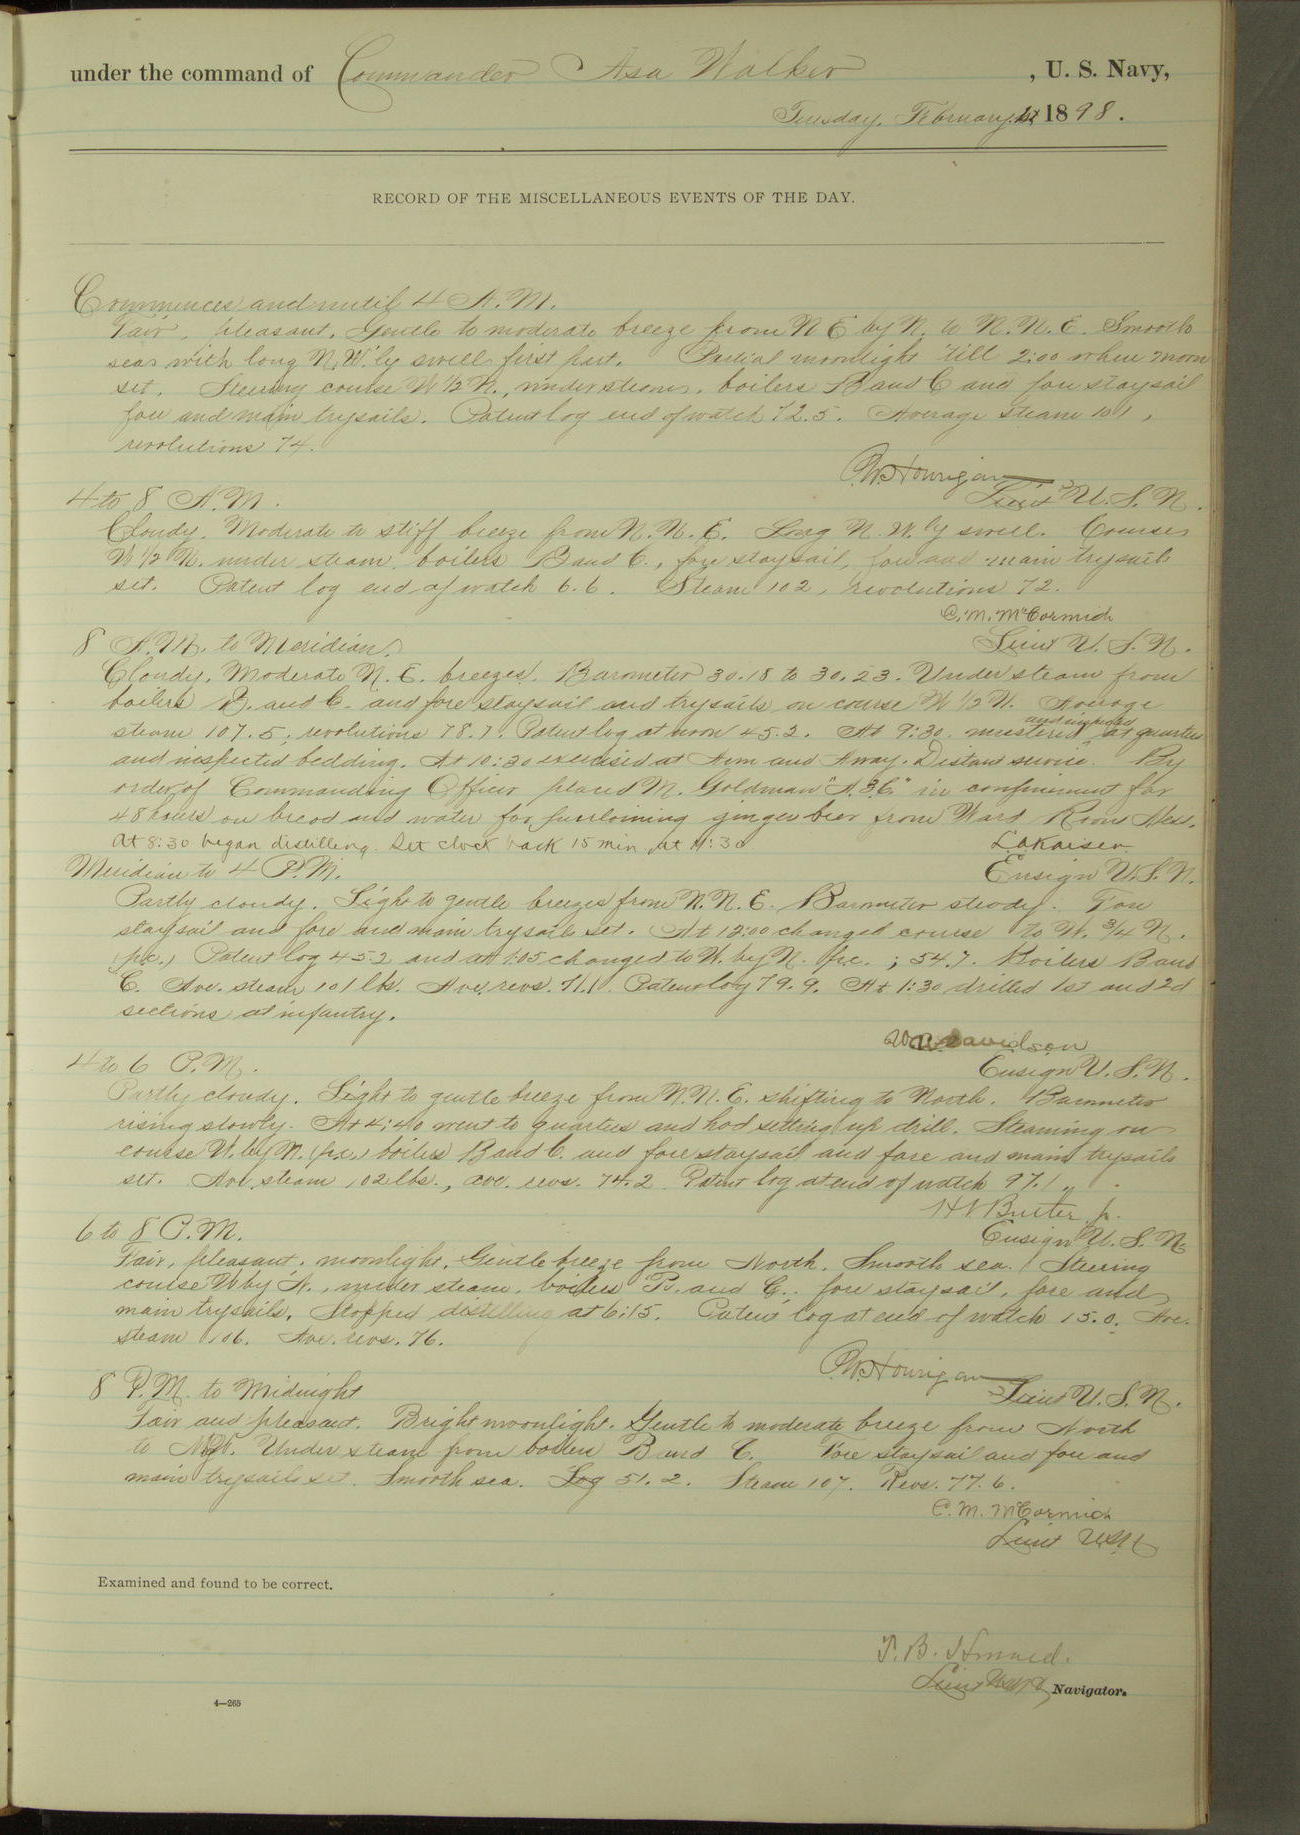 under the command of Commander Asa Walker, U. S. Navy,
Tuesday, February 1, 1898.
RECORD OF THE MISCELLANEOUS EVENTS OF THE DAY.
Commences and until 4 A.M.
Fair, pleasant. Gentle to moderate breeze from N E by N. to N.N.E. Smooth
sea with long N.W'ly swell first part. Partial moonlight 'till 2:00 when moon
set. Steering course W ½ N., under steam, boilers B and C and fore staysail
fore and main trysails. Patent log end of watch 72.5. Average steam 101,
revolutions 74.
P.W. Hourigan
Lieut U.S.N.
4 to 8 A.M.
Cloudy. Moderate to stiff breeze from N.N.E. Long N.W.ly swell. Course
W ½ N. under steam, boilers B and C., fore staysail, fore and main trysails
set. Patent log end of watch 6.6. Steam 102, revolutions 72.
C. M. McCormick
Lieut U.S.N.
8 A.M. to Meridian.
Cloudy. Moderate N.E. breezes. Barometer 30.18 to 30.23. Under steam from
boilers B. and C. and fore staysail and trysails on course W ½ N. Average
steam 107.5, revolutions 78.7. Patent log at noon 45.2. At 9:30 mustered at quarters
and inspected bedding. At 10:30 exercised at Arm and Away. Distant service. By
order of Commanding Officer placed M. Goldman "A.3.C" in confinement for
48 hours on bread and water for purloining ginger beer from Ward Room Mess.
At 8:30 began distilling. Set clock back 15 min. at 11:30
L.A. Kaiser
Ensign U.S.N.
Meridian to 4 P.M.
Partly cloudy. Light to gentle breezes from N.N.E. Barometer steady. Fore
staysail and fore and main trysails set. At 12:00 changed course to W. ¾ N.
(p.c.) Patent log 45.2 and at 1:05 changed to W. by N. p.c. ; 54.7. Boilers B and
C. Ave. steam 101 lbs. Ave. revs. 71.1. Patent log 79.9. At 1:30 drilled 1st and 2d
sections at infantry.
Davidson
Ensign U.S.N.
4 to 6 P.M.
Partly cloudy. Light to gentle breeze from N.N.E. shifting to North. Barometer
rising slowly. At 4:40 went to quarters and had setting up drill. Steaming on
course W. by N. (p.c.) boilers B and C. and fore staysail and fore and main trysails
set. Ave. steam 102 lbs., ave. revs. 74.2. Patent log at end of watch 97.1.
Ensign U.S.N.
6 to 8 P.M.
Fair, pleasant, moonlight. Gentle breeze from North. Smooth sea. Steering
course W by N., under steam, boilers B. and C., fore staysail, fore and
main trysails. Stopped distilling at 6:15. Patent log at end of watch 15.0. Ave.
steam 106. Ave. revs. 76.
P.W. Hourigan
Lieut U.S.N.
8 P.M. to Midnight
Fair and pleasant. Bright moonlight. Gentle to moderate breeze from North
to Under steam from boilers B and C. Fore staysail and fore and
main trysails set. Smooth sea. Log 51.2. Steam 107. Revs. 77.6.
C. M. McCormick
Lieut USN
Examined and found to be correct.
T. B. Howard.
Lieut U.S.N. Navigator.
4—265